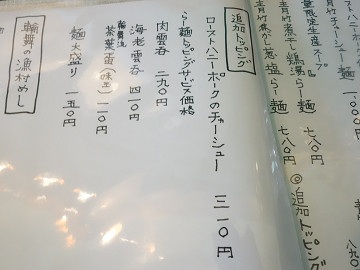 麺 1,000
青竹チャーシュー
数量限定生産スープ
青竹煮干し鶏湯らー麺 七八〇円
青竹煮干し葱塩らー麺 七八〇円
◎追加トッピング
追加トッピング
ローストハニーポークのチャーシュー 三一〇円
らー麺トッピングサービス価格
肉雲呑 二九〇円
海老雲呑 四一〇
輪舞流
茶葉蛋(味玉) 一一〇円
麺大盛り 一五〇円
輪舞の漁村めし